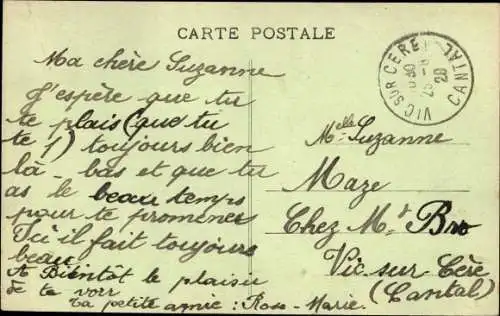 CARTE POSTALE
Ma chère Suzanne
J'espère que tu
te plais (que tu
te ) toujours bien
là-bas et que tu
as le beau temps
pour te promener
Ici il fait toujours
beau.
A Bientôt le plaisir
de te voir
Ta petite amie : Rose-Marie.
VIC SUR CERE
CANTAL
Melle Suzanne
Maze
Chez Md Bro
Vic sur Cère
(Cantal)